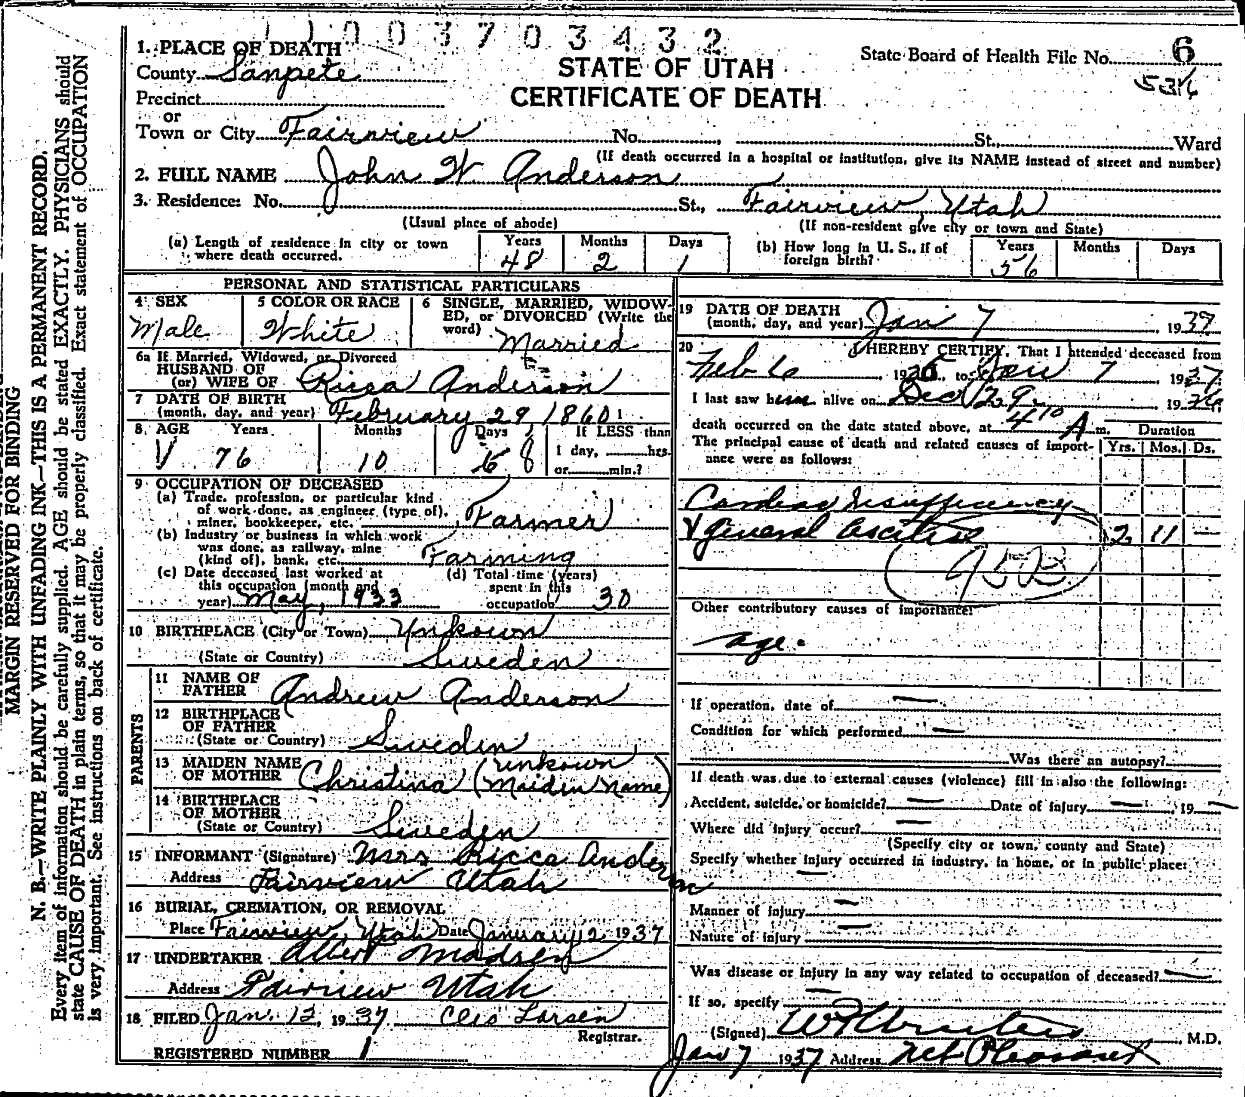 1 1 0 0 3 7 0 3 4 3 2
1. PLACE OF DEATH
County Sanpete
Precinct
or
Town or City Fairview No. , St., Ward
STATE OF UTAH
CERTIFICATE OF DEATH
State Board of Health File No. 6
(If death occurred in a hospital or institution, give its NAME instead of street and number)
2. FULL NAME John W Anderson
3. Residence: No. St., Fairview, Utah
(Usual place of abode) (If non-resident give city or town and State)
(a) Length of residence in city or town where death occurred. Years 48 Months 2 Days 1
(b) How long in U. S., if of foreign birth? Years 56 Months Days
PERSONAL AND STATISTICAL PARTICULARS
4 SEX Male
5 COLOR OR RACE White
6 SINGLE, MARRIED, WIDOWED, or DIVORCED (Write the word) Married
6a If Married, Widowed, or Divorced
HUSBAND OF
(or) WIFE OF Ricca Anderson
7 DATE OF BIRTH
(month, day, and year) February 29, 1860
8. AGE Years Months Days If LESS than
76 10 8 1 day, hrs.
or min.?
9 OCCUPATION OF DECEASED
(a) Trade, profession, or particular kind
of work done, as engineer (type of),
miner, bookkeeper, etc. Farmer
(b) Industry or business in which work
was done, as railway, mine
(kind of), bank, etc. Farming
(c) Date deceased last worked at
this occupation (month and
year) May, 1933
(d) Total time (years)
spent in this
occupation 30
10 BIRTHPLACE (City or Town) Unkown
(State or Country) Sweden
PARENTS
11 NAME OF
FATHER Andrew Anderson
12 BIRTHPLACE
OF FATHER
(State or Country) Sweden
13 MAIDEN NAME
OF MOTHER Christina (unkown Maiden Name)
14 BIRTHPLACE
OF MOTHER
(State or Country) Sweden
15 INFORMANT (Signature) Mrs Ricca Anderson
Address Fairview Utah
16 BURIAL, CREMATION, OR REMOVAL
Place Fairview, Utah Date January 12 1937
17 UNDERTAKER Albert Madsen
Address Fairview Utah
18 FILED Jan. 12, 1937 Cleo Larsen
Registrar.
REGISTERED NUMBER 1
19 DATE OF DEATH
(month, day, and year) Jan 7, 1937
20 I HEREBY CERTIFY, That I attended deceased from
Feb 6, 193 , to Jan 7 1937
I last saw him alive on Dec 29 1936
death occurred on the date stated above, at 4 10 A m. Duration
The principal cause of death and related causes of importance were as follows: Yrs. Mos. Ds.
Cardiac Insufficiency
General ascites 2 11 —
(95B)
Other contributory causes of importance:
age.
If operation, date of —
Condition for which performed —
Was there an autopsy? —
If death was due to external causes (violence) fill in also the following:
Accident, suicide, or homicide? — Date of injury — , 19 —
Where did injury occur? —
(Specify city or town, county and State)
Specify whether injury occurred in industry, in home, or in public place:
—
Manner of injury —
Nature of injury —
Was disease or injury in any way related to occupation of deceased? —
If so, specify —
(Signed) , M.D.
Jan 7 1937 Address Mt Pleasant
MARGIN RESERVED FOR BINDING
N. B.—WRITE PLAINLY WITH UNFADING INK—THIS IS A PERMANENT RECORD.
Every item of information should be carefully supplied. AGE should be stated EXACTLY. PHYSICIANS should
state CAUSE OF DEATH in plain terms, so that it may be properly classified. Exact statement of OCCUPATION
is very important. See instructions on back of certificate.